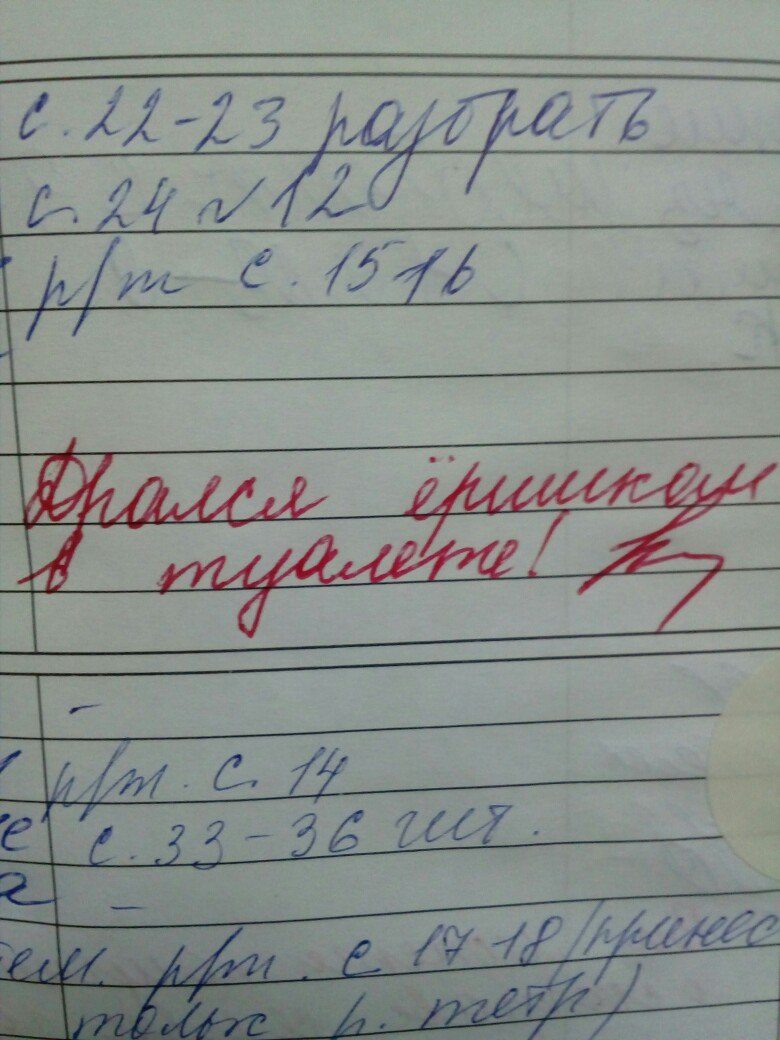 с. 22-23 разобрать
с. 24 № 12
р/т с. 15 16
Дрался ёршиком
в туалете!
-
р/т. с. 14
е с. 33-36 чит.
а -
ем. р/т. с 17 18 (принес
тольк р. тетр.)